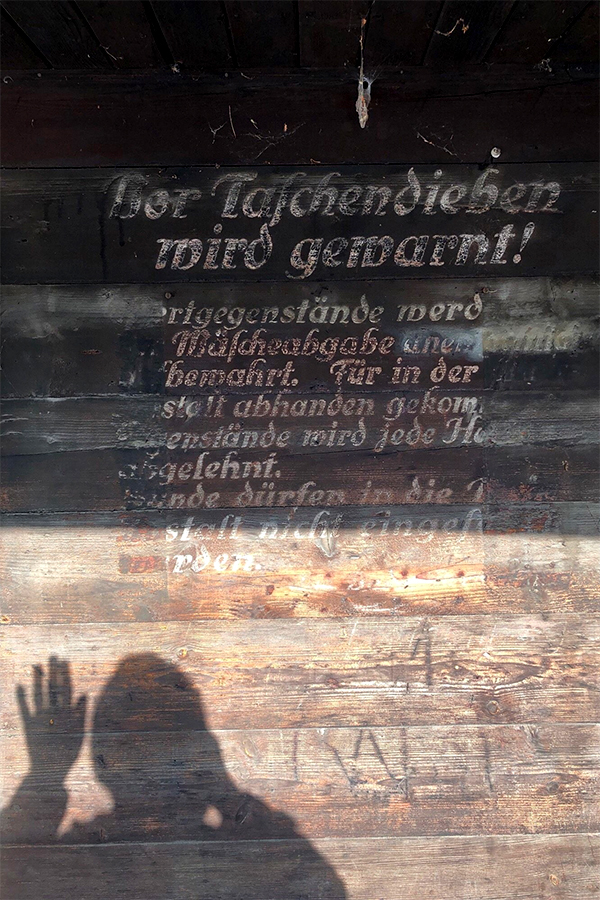 Vor Taschendieben
wird gewarnt!
rtgegenstände werd
Wäscheabgabe
bewahrt. Für in der
stalt abhanden gekom
enstände wird jede
gelehnt.
unde dürfen in die
stalt nicht eingef
rden.